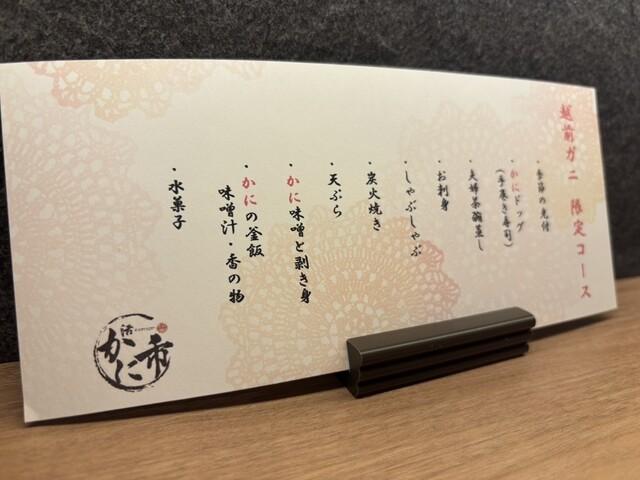 越前ガニ 限定コース
・季節の先付
・かにドッグ
(手巻き寿司)
・夫婦茶碗蒸し
・お刺身
・しゃぶしゃぶ
・炭火焼き
・天ぷら
・かに味噌と剥き身
・かにの釜飯
味噌汁・香の物
・水菓子
活
かに市